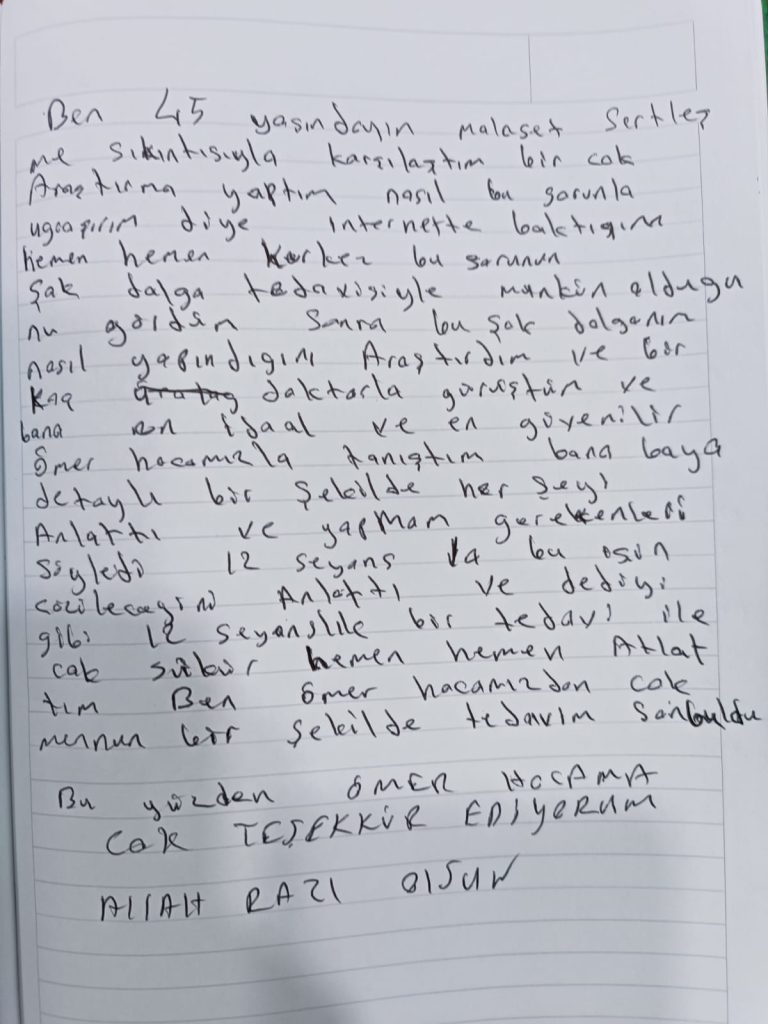 Ben 45 yasındayın malaset Sertleş
me sıkıntısıyla karşılaştım bir cok
Araştırma yaptım nasıl bu sorunla
ugraşırım diye internette baktıgım
hemen hemen herkez bu sorunun
Şok dalga tedavisiyle mankün oldugu
nu gördüm Sonra bu şok dalganın
nasıl yapındıgını Araştırdım ve bir
kaç doktorla görüştün ve
bana en idaal ve en güvenilir
ömer hocamızla tanıştım bana baya
detaylı bir Şekilde her şeyi
Anlattı ve yapmam gerekenleri
Söyledi 12 seyans la bu işin
cözülecegini Anlattı ve dediyi
gibi 12 seyanslık bir tedavi ile
cok sükür hemen hemen Atlat
tım Ben ömer hocamızdan cok
memnun bir şekilde tedavim Sonbuldu
Bu yüzden ÖMER HOCAMA
COK TEŞEKKÜR EDİYORUM
AllAH RAZI OlSUN